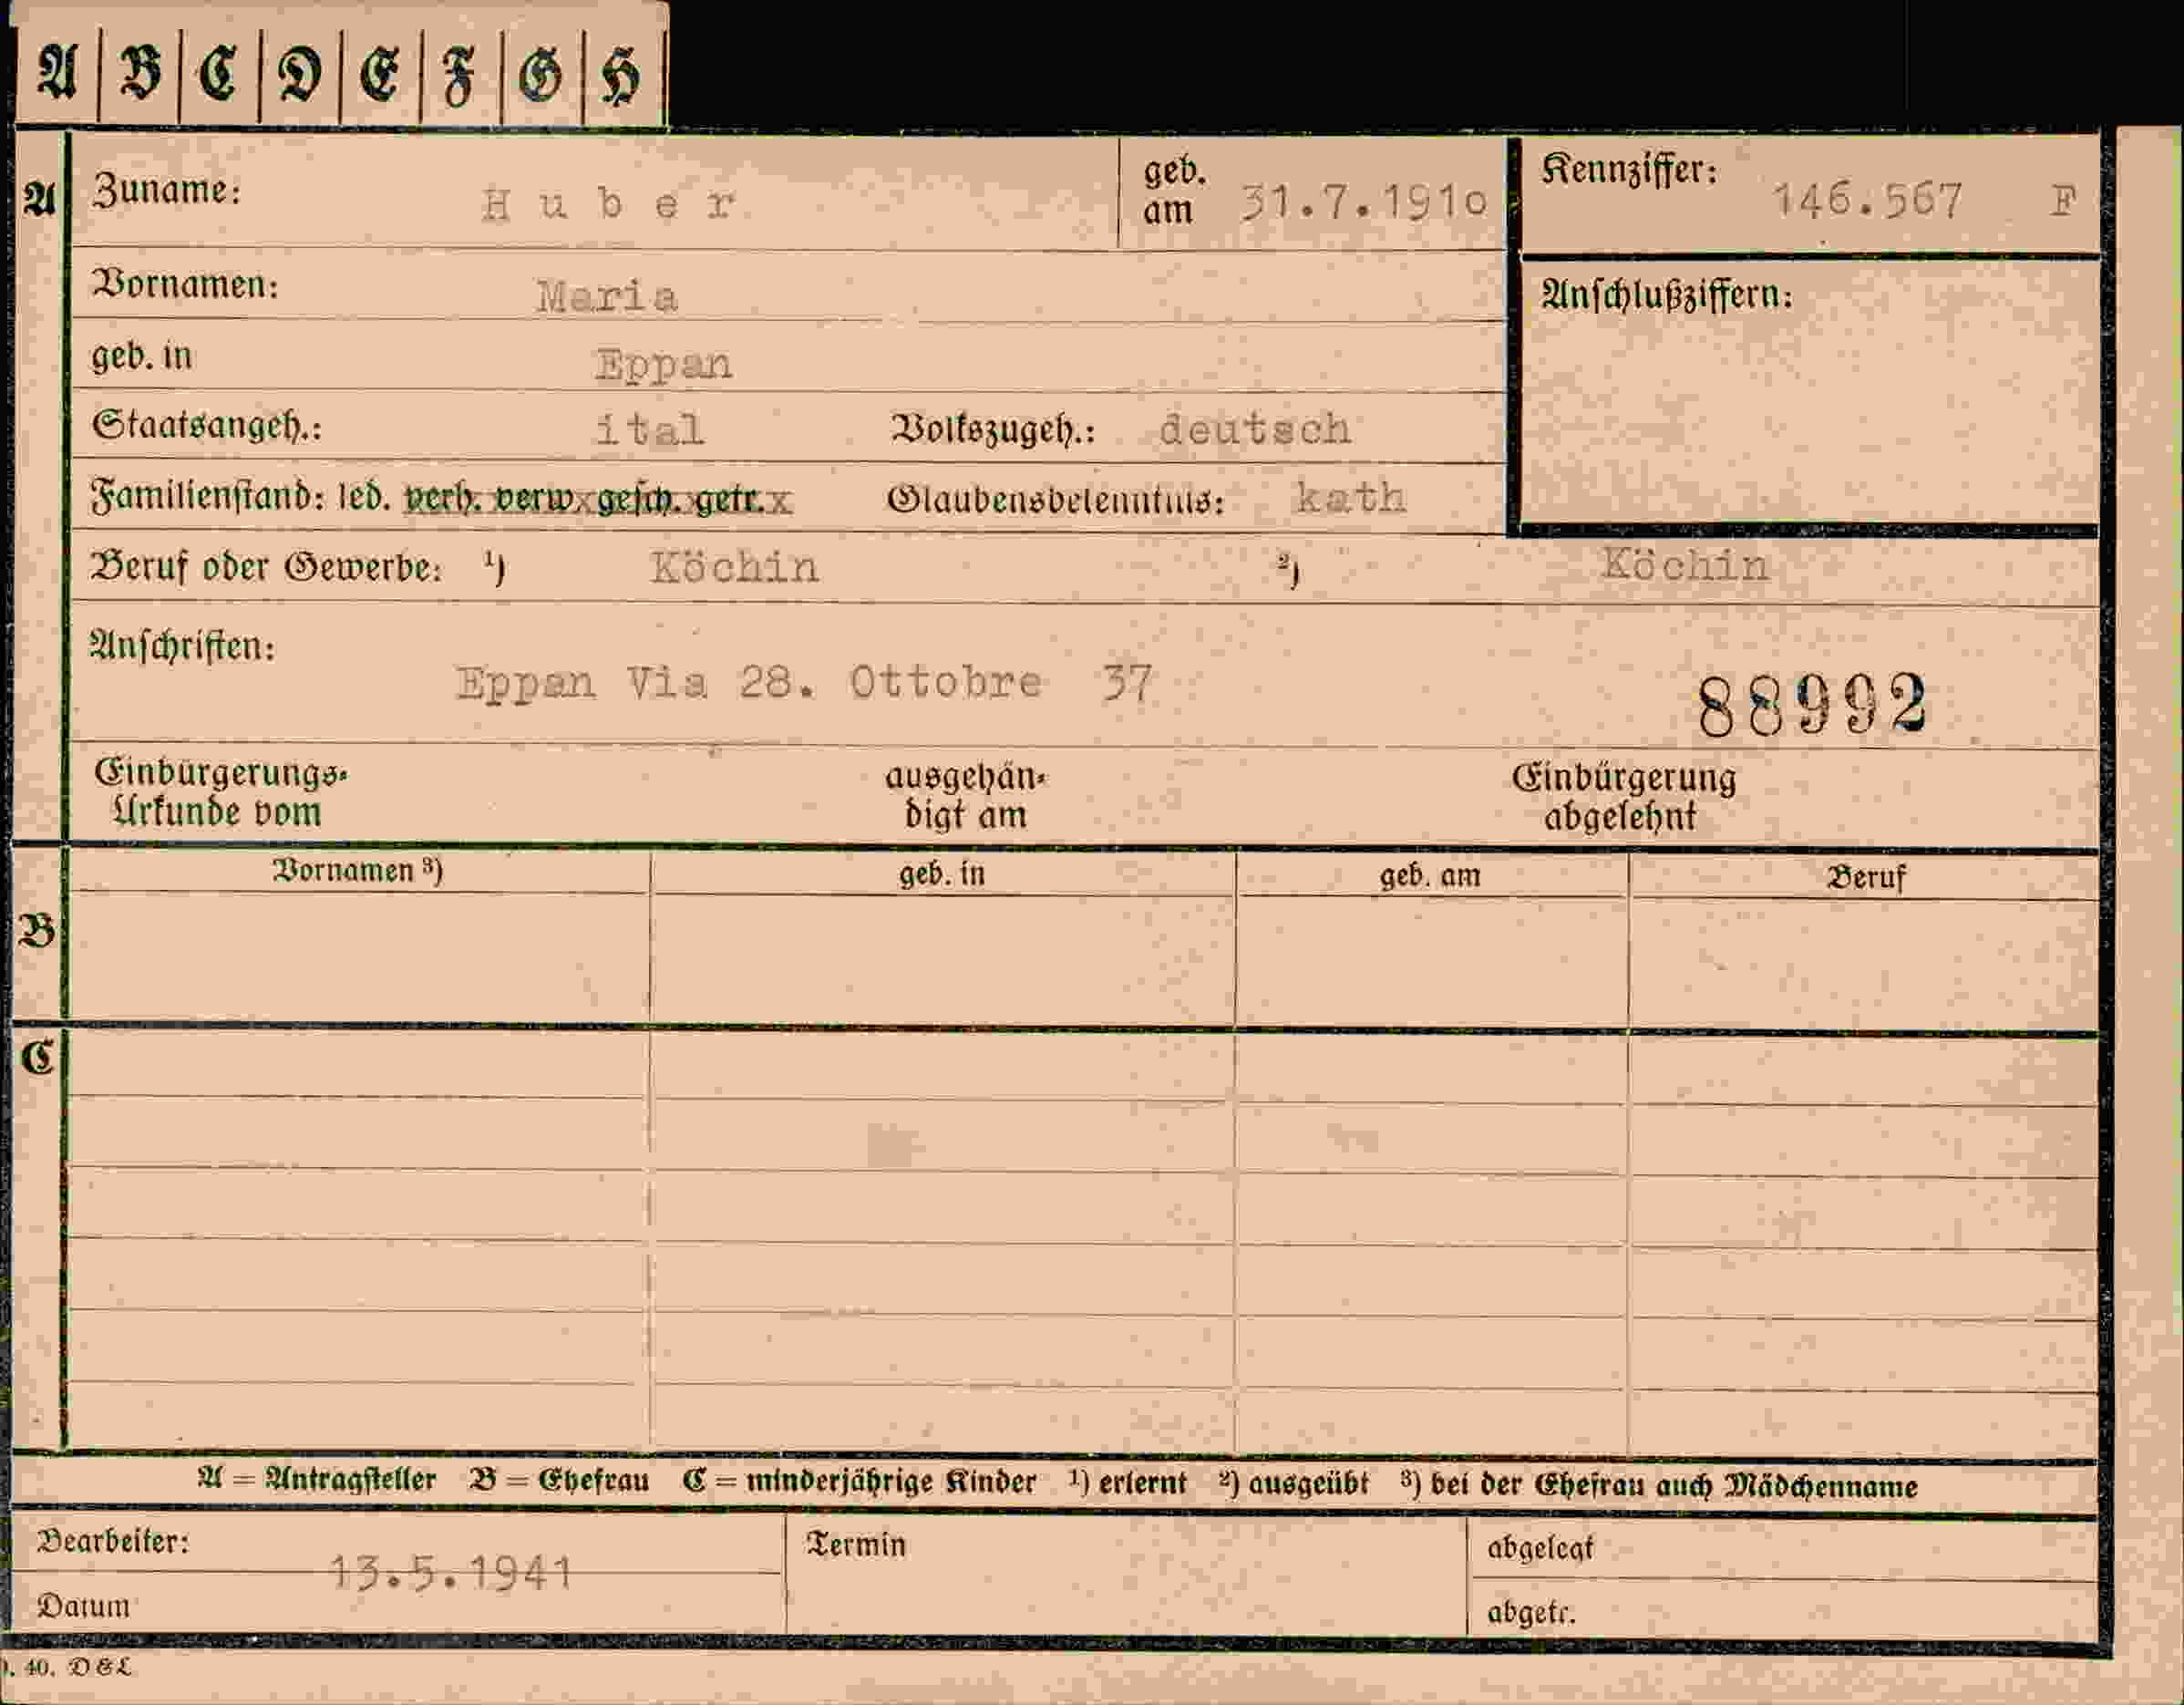 A B C D E F G H
A Zuname: Huber geb. am 31.7.1910 Kennziffer: 146.567 F
Vornamen: Maria Anschlußziffern:
geb. in Eppan
Staatsangeh.: ital Volkszugeh.: deutsch
Familienstand: led. verh. verw. gesch. getr. Glaubensbekenntnis: kath
Beruf oder Gewerbe: ¹) Köchin ²) Köchin
Anschriften:
Eppan Via 28. Ottobre 37 88992
Einbürgerungs- ausgehän- Einbürgerung
Urkunde vom digt am abgelehnt
Vornamen ³) geb. in geb. am Beruf
B
C
A = Antragsteller B = Ehefrau C = minderjährige Kinder ¹) erlernt ²) ausgeübt ³) bei der Ehefrau auch Mädchenname
Bearbeiter: Termin abgelegt
13.5.1941
Datum abgetr.
40. D & L